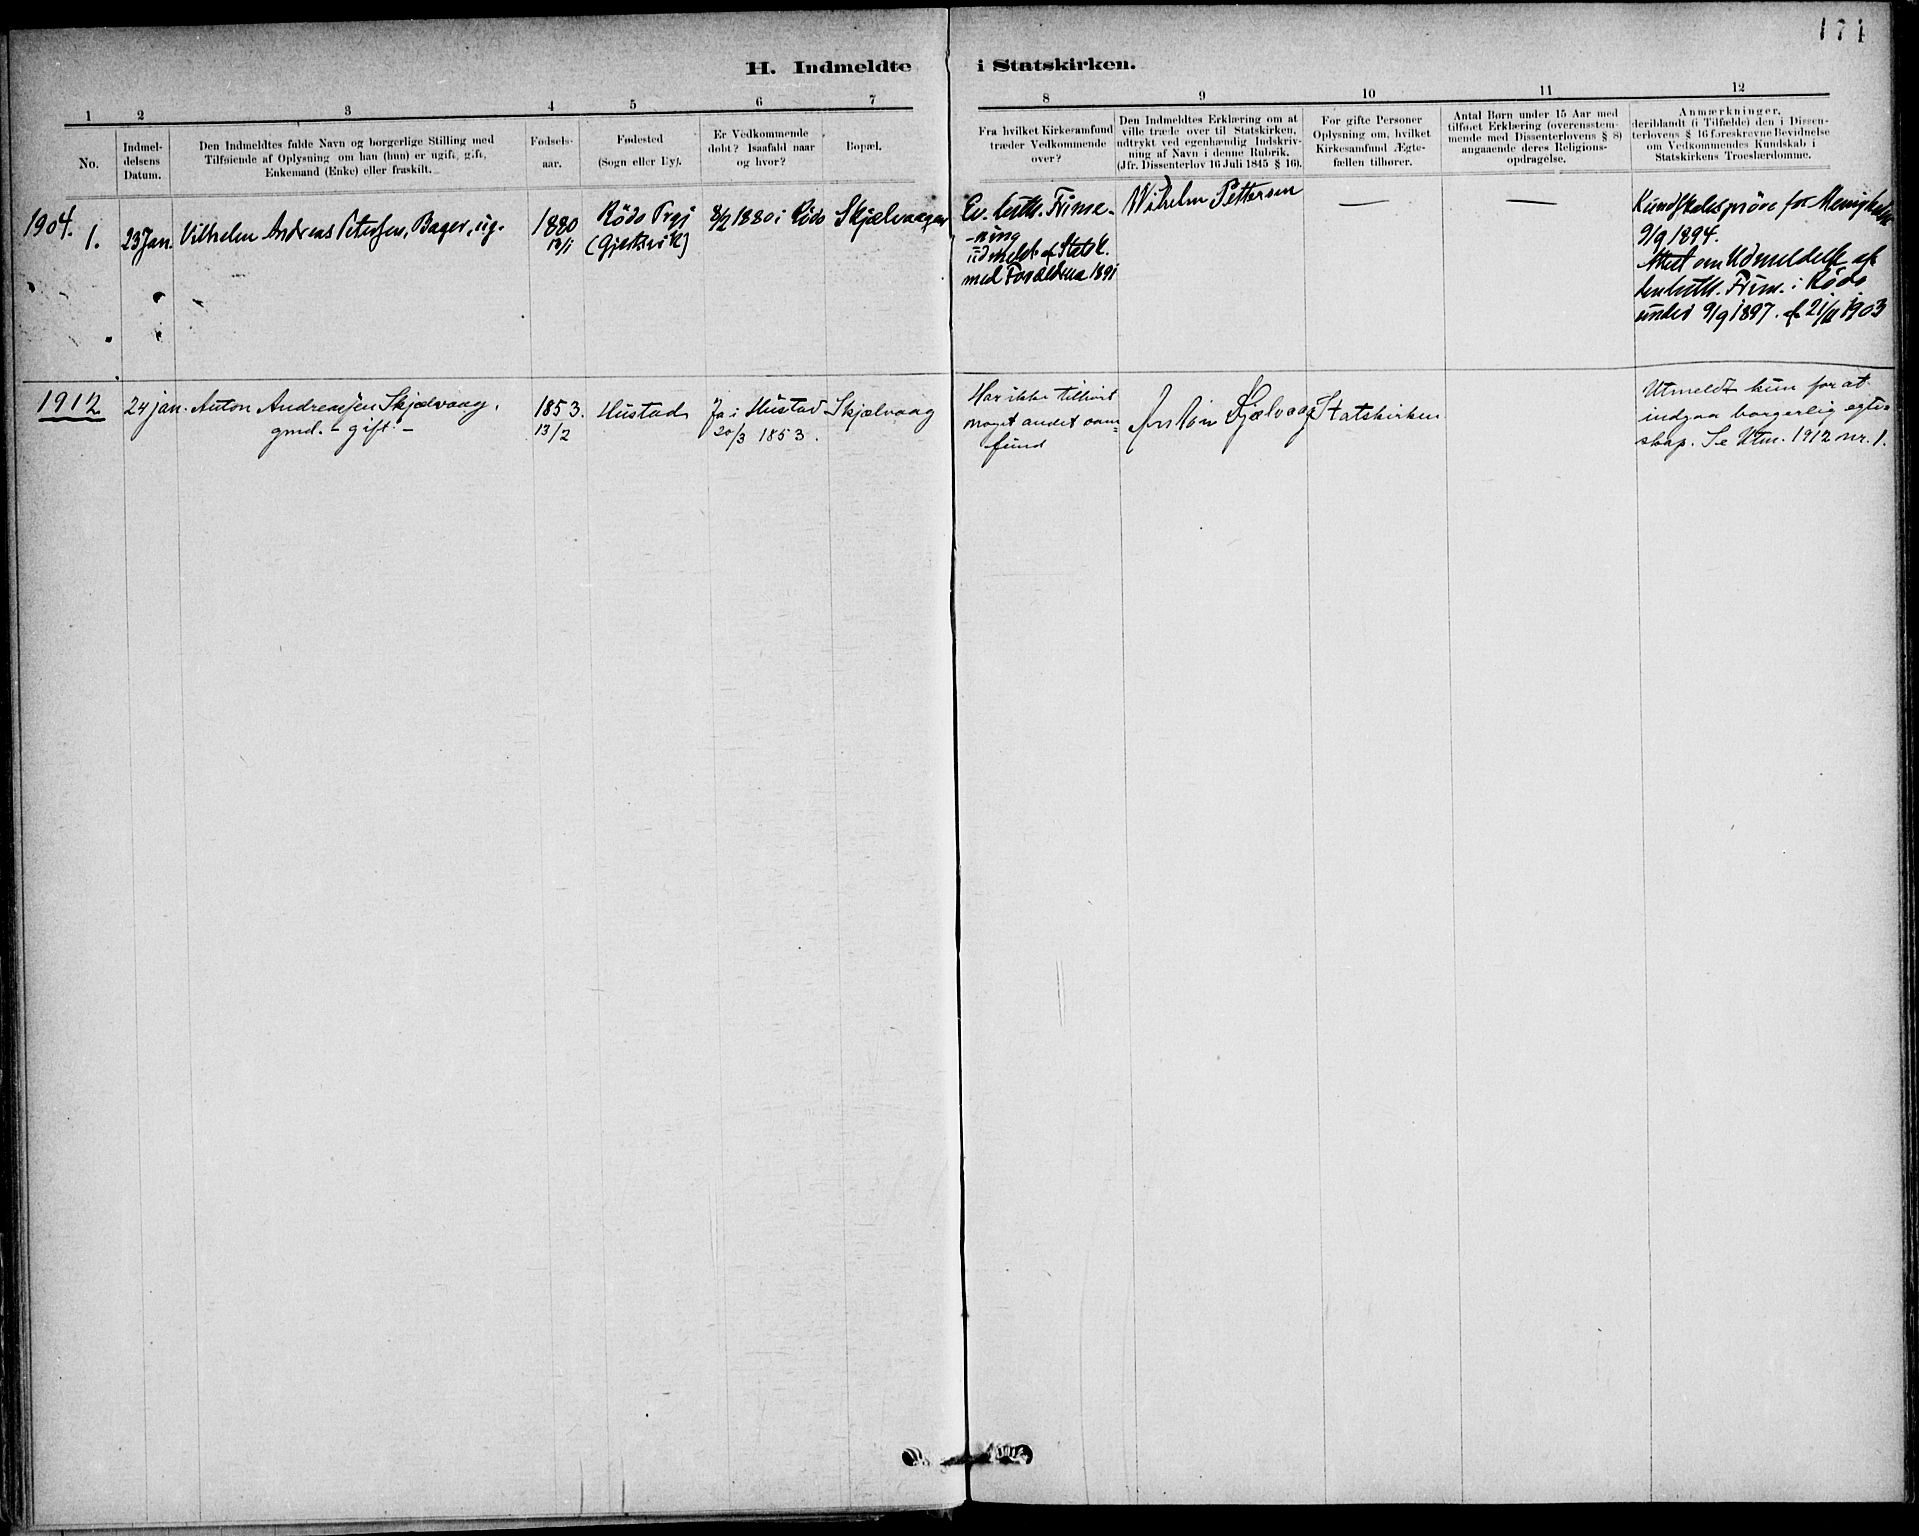 171
H. Indmeldte i Statskirken.
1 2 3 4 5 6 7 8 9 10 11 12
No.
Indmel-
delsens
Datum.
Den Indmeldtes fulde Navn og borgerlige Stilling med
Tilføiende af Oplysning om han (hun) er ugift, gift,
Enkemand (Enke) eller fraskilt.
Fødsels-
aar.
Fødested
(Sogn eller By).
Er Vedkommende
døbt? Isaafald naar
og hvor?
Bopæl.
Fra hvilket Kirkesamfund
træder Vedkommende
over?
Den Indmeldtes Erklæring om at
ville træde over til Statskirken,
udtrykt ved egenhændig Indskriv-
ning af Navn i denne Rubrik.
(Jfr. Dissenterlov 16 Juli 1845 § 16).
For gifte Personer
Oplysning om, hvilket
Kirkesamfund Ægte-
fællen tilhører.
Antal Børn under 15 Aar med
tilføiet Erklæring (overensstem-
mende med Dissenterlovens § 8)
angaaende deres Religions-
opdragelse.
Anmærkninger,
deriblandt (i Tilfælde) den i Dissen-
terlovens § 16 foreskrevne Bevidnelse
om Vedkommendes Kundskab i
Statskirkens Troeslærdomme.
1904.
1.
23 Jan.
Vilhelm Andreas Petersen, Bager, ug.
1880
13/1
Rödö Prgj
(Gjerksvik)
8/2 1880 i Rödö
Skjælvaagen
Ev. luth. Frime-
-ning
udmeldt af Statsk.
med Forældrene 1891
Wilhelm Pettersen
—
—
Kundskabsprøve for Menigheden
9/9 1894.
Attest om Udmeldelse af
den luth. Frim. i Rödö
under 9/9 1897. af 21/11 1903
1912
24 jan.
Anton Andreassen Skjælvaag,
gmd. - gift. -
1853.
13/2
Hustad
Ja i Hustad
20/3 1853.
Skjælvaag
Har ikke tilhørt
noget andet sam=
fund
Anton Sjælvaag
Statskirken
Utmeldt kun for at
indgaa borgerlig egte-
skap. Se Utm. 1912 nr. 1.